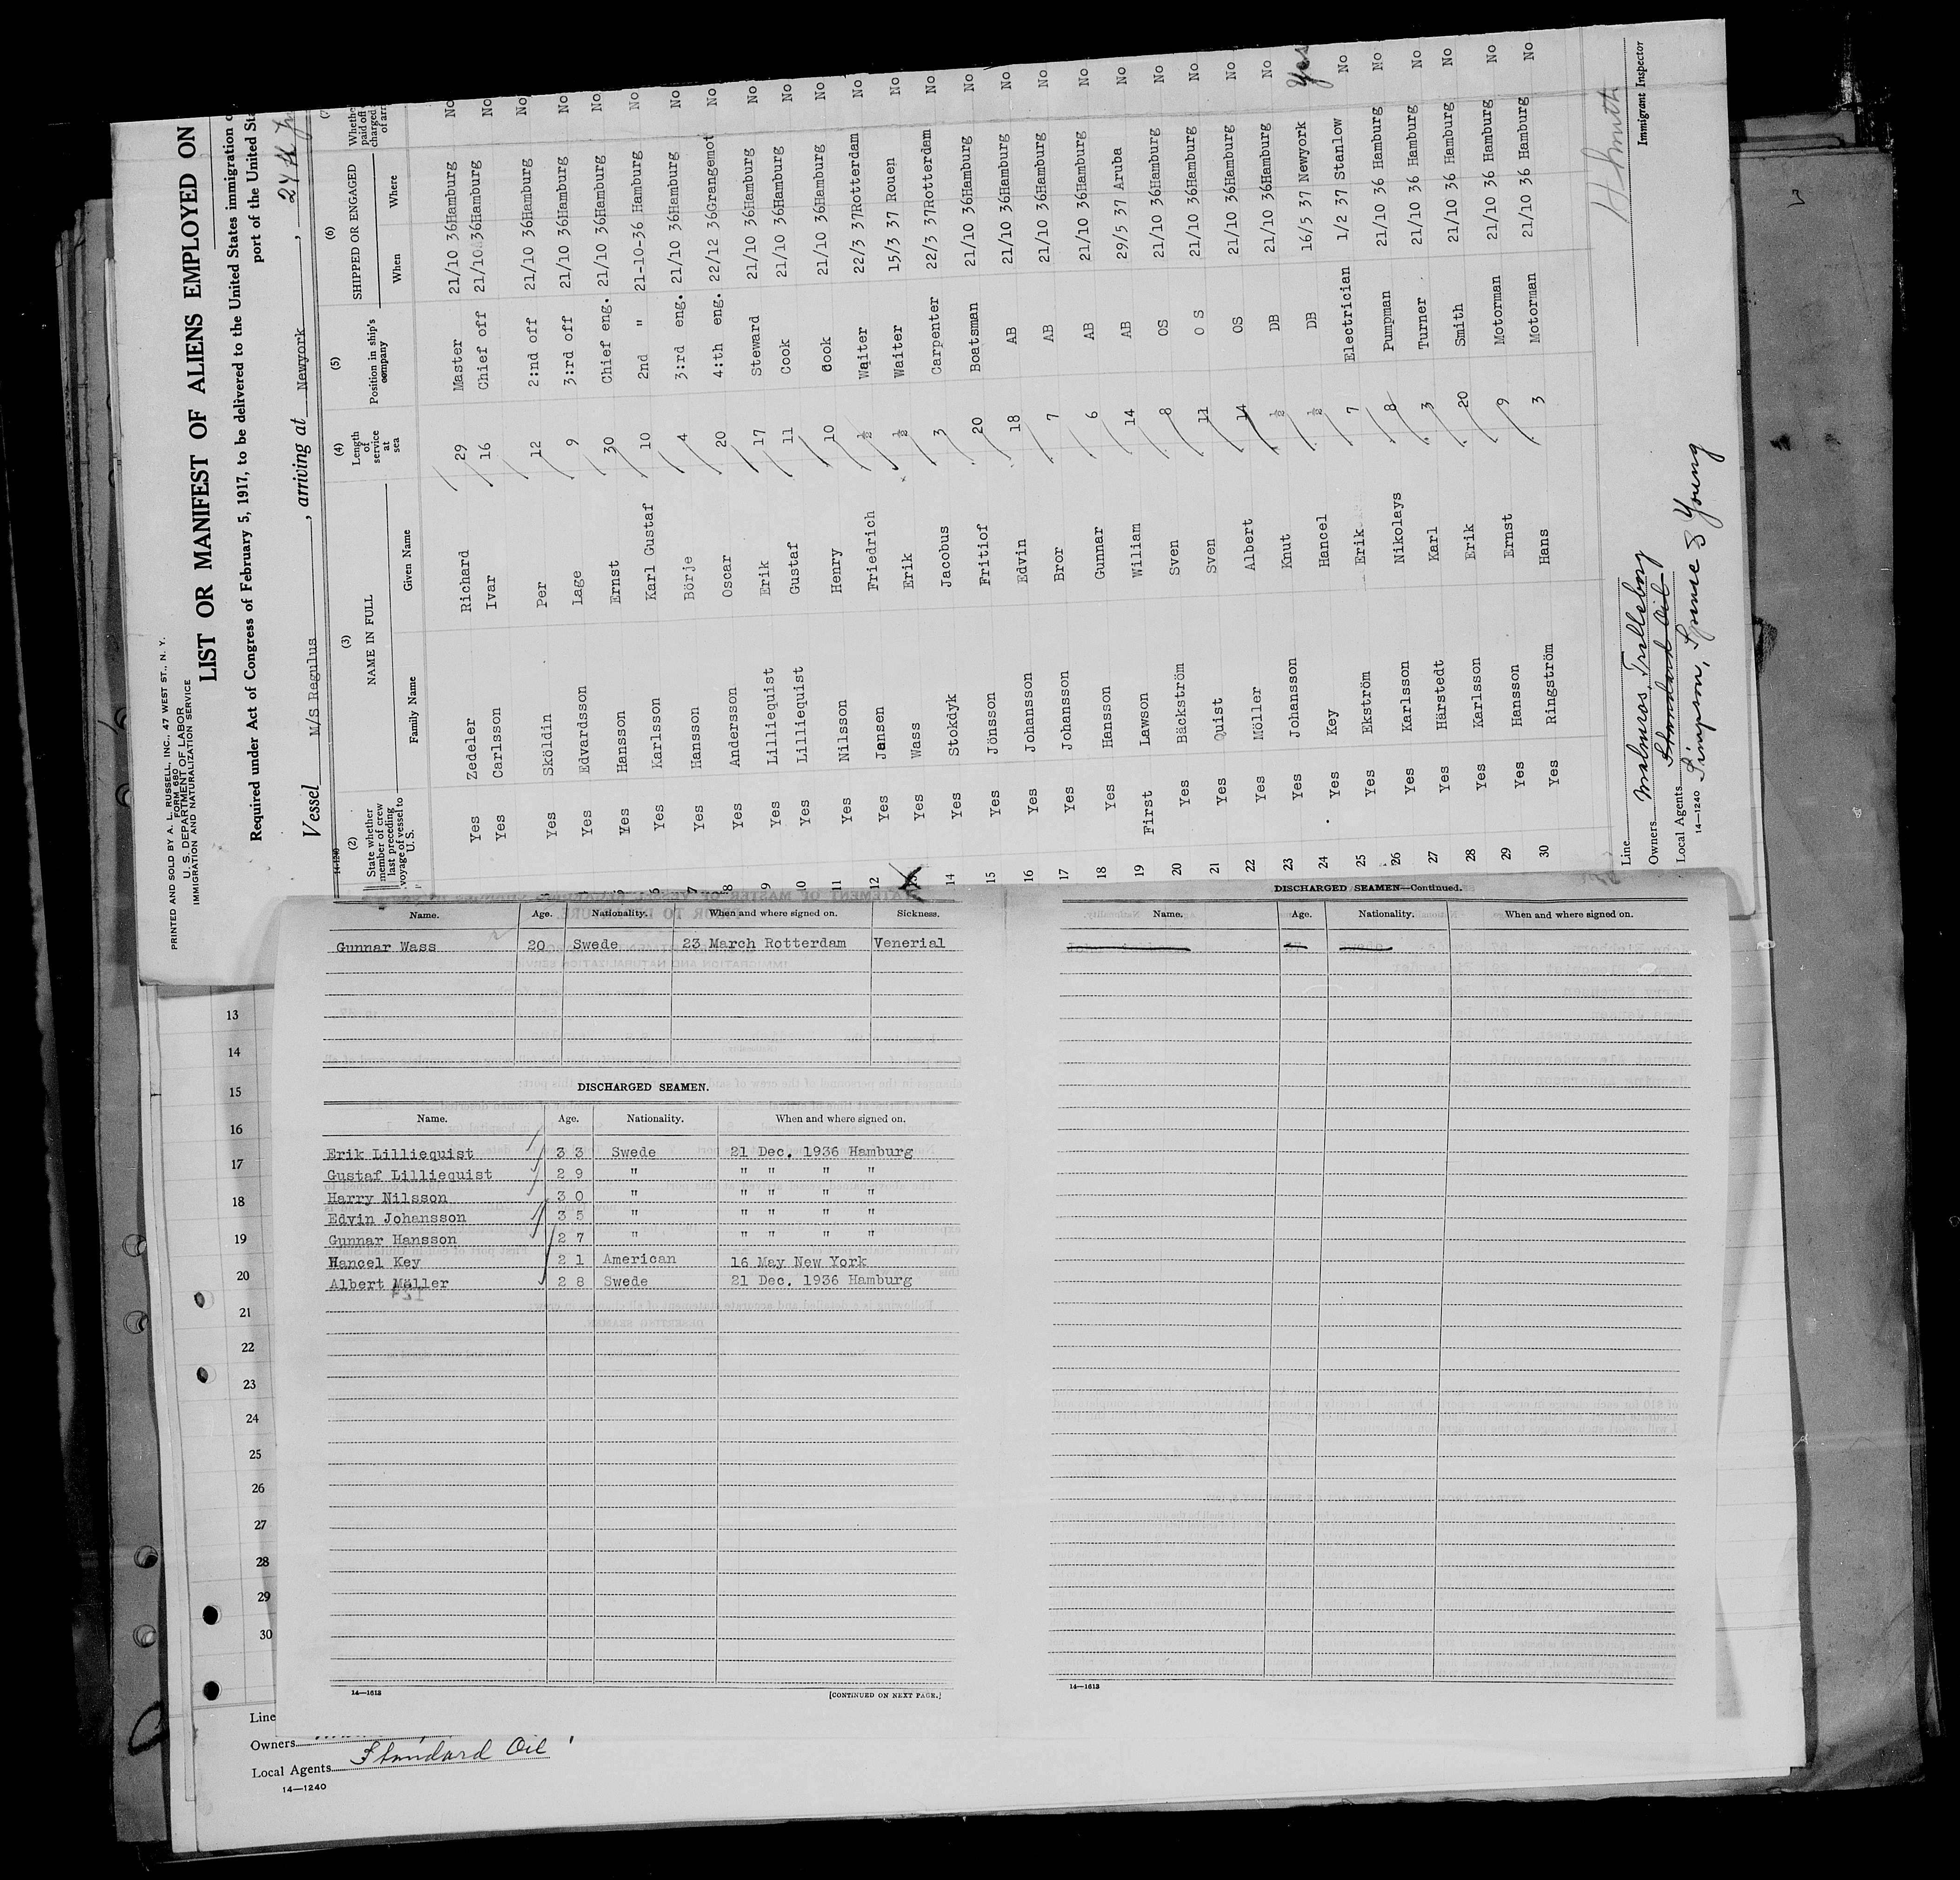 PRINTED AND SOLD BY A. L. RUSSELL, INC., 47 WEST ST., N. Y.
FORM 680
U. S. DEPARTMENT OF LABOR
IMMIGRATION AND NATURALIZATION SERVICE
LIST OR MANIFEST OF ALIENS EMPLOYED ON
Required under Act of Congress of February 5, 1917, to be delivered to the United States immigration
port of the United
Vessel M/S Regulus, arriving at Newyork, 24th
14-1240
(2) (3) (4) (5) (6)
State whether member of crew last preceding voyage of vessel to U.S. NAME IN FULL Length of service at sea Position in ship's company SHIPPED OR ENGAGED
Family Name Given Name When Where
Yes Zedeler Richard 29 Master 21/10 36 Hamburg No
Yes Carlsson Ivar 16 Chief off 21/10 36 Hamburg No
Yes Sköldin Per 12 2:nd off 21/10 36 Hamburg No
Yes Edvardsson Lage 9 3:rd off 21/10 36 Hamburg No
5 Yes Hansson Ernst 30 Chief eng. 21/10 36 Hamburg No
6 Yes Karlsson Karl Gustaf 10 2nd " 21-10-36 Hamburg No
7 Yes Hansson Börje 4 3:rd eng. 21/10 36 Hamburg No
8 Yes Andersson Oscar 20 4:th eng. 22/12 36 Grangemot No
9 Yes Lilliequist Erik 17 Steward 21/10 36 Hamburg No
10 Yes Lilliequist Gustaf 11 Cook 21/10 36 Hamburg No
11 Yes Nilsson Henry 10 Cook 21/10 36 Hamburg No
12 Yes Jansen Friedrich ½ Waiter 22/3 37 Rotterdam No
13 Yes Wass Erik ½ Waiter 15/3 37 Rouen No
14 Yes Stokdyk Jacobus 3 Carpenter 22/3 37 Rotterdam No
15 Yes Jönsson Fritiof 20 Boatsman 21/10 36 Hamburg No
16 Yes Johansson Edvin 18 AB 21/10 36 Hamburg No
17 Yes Johansson Bror 7 AB 21/10 36 Hamburg No
18 Yes Hansson Gunnar 6 AB 21/10 36 Hamburg No
19 First Lawson Wiliam 14 AB 29/5 37 Aruba No
20 Yes Bäckström Sven 8 OS 21/10 36 Hamburg No
21 Yes Quist Sven 11 O S 21/10 36 Hamburg No
22 Yes Möller Albert 14 OS 21/10 36 Hamburg No
23 Yes Johansson Knut ½ DB 21/10 36 Hamburg No
24 Yes Key Hancel ½ DB 16/5 37 Newyork Yes
25 Yes Ekström Erik 7 Electrician 1/2 37 Stanlow No
26 Yes Karlsson Nikolays 8 Pumpman 21/10 36 Hamburg No
27 Yes Härstedt Karl 3 Turner 21/10 36 Hamburg No
28 Yes Karlsson Erik 20 Smith 21/10 36 Hamburg No
29 Yes Hansson Ernst 9 Motorman 21/10 36 Hamburg No
30 Yes Ringström Hans 3 Motorman 21/10 36 Hamburg No
Line
Owners Malmros, Trelleborg
Local Agents Standard Oil
Simpson, Spence & Young
14-1240
H Smith
Immigrant Inspector
Name. Age. Nationality. When and where signed on. Sickness.
Gunnar Wass 20 Swede 23 March Rotterdam Venerial
DISCHARGED SEAMEN.
Name. Age. Nationality. When and where signed on.
Erik Lilliequist 33 Swede 21 Dec. 1936 Hamburg
Gustaf Lilliequist 29 " " " " "
Harry Nilsson 30 " " " " "
Edvin Johansson 35 " " " " "
Gunnar Hansson 27 " " " " "
Hancel Key 21 American 16 May New York
Albert Möller 28 Swede 21 Dec. 1936 Hamburg
14—1613
[CONTINUED ON NEXT PAGE.]
DISCHARGED SEAMEN—Continued.
Name. Age. Nationality. When and where signed on.
14—1613
13
14
15
16
17
18
19
20
21
22
23
24
25
26
27
28
29
30
Line
Owners
Local Agents Standard Oil
14—1240